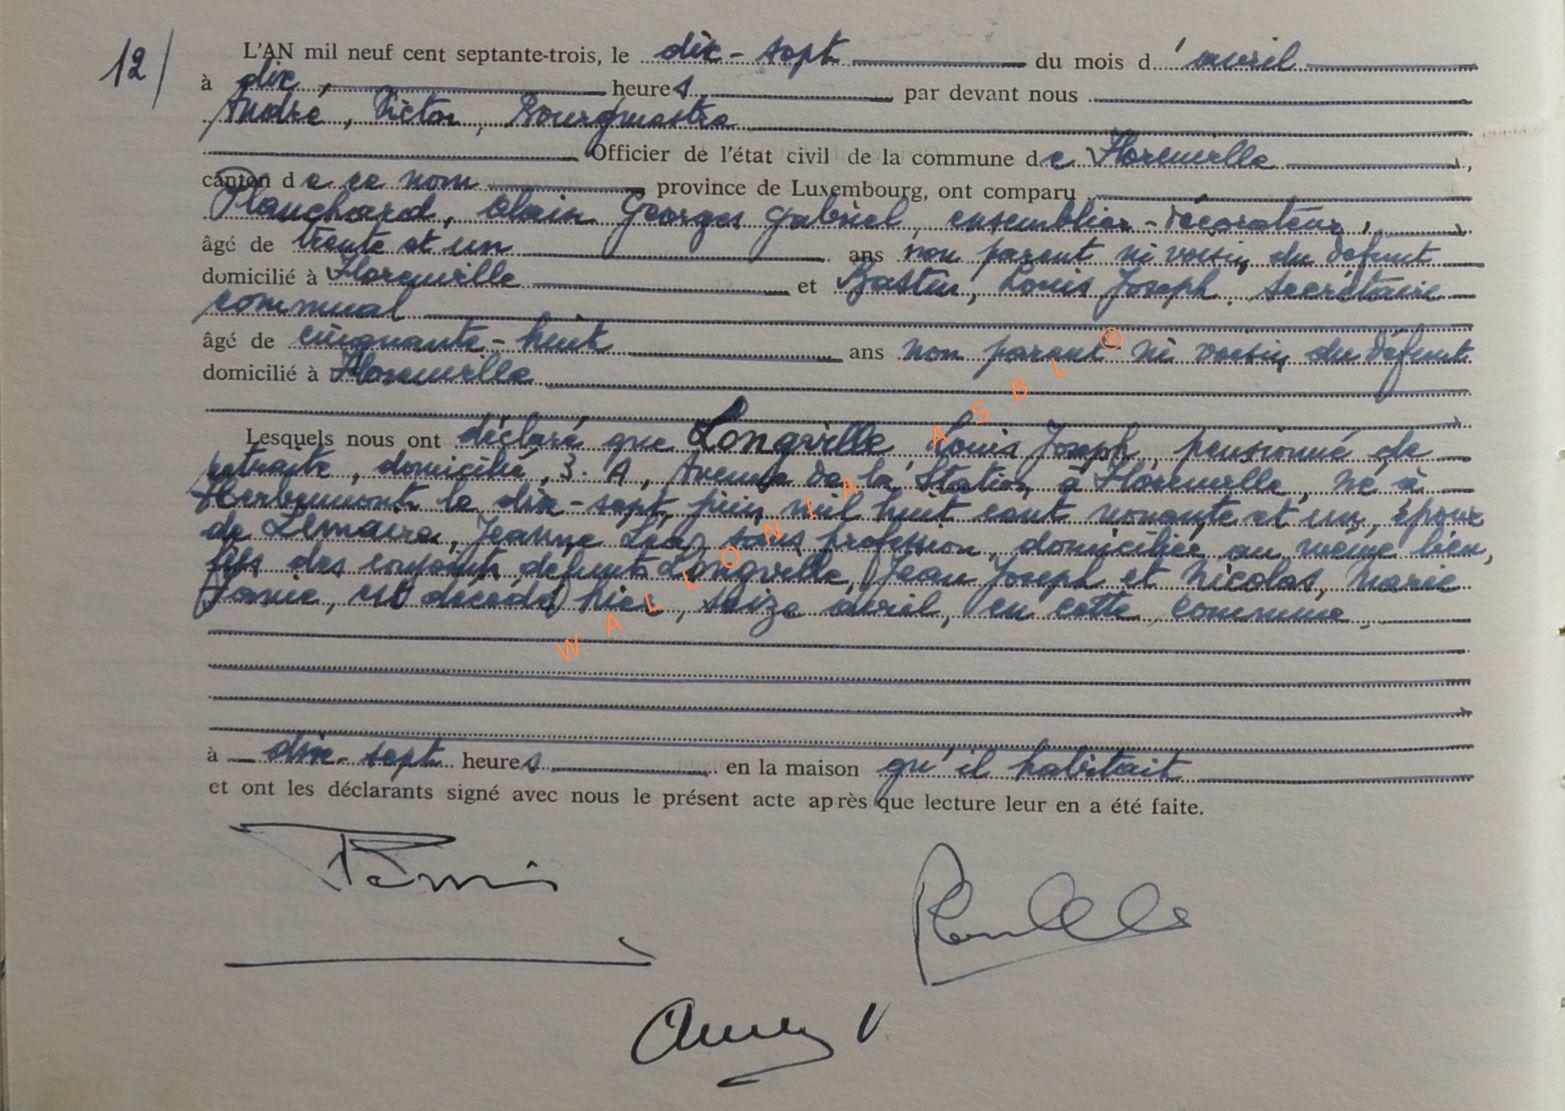 12/
L'AN mil neuf cent septante-trois, le dix-sept du mois d'avril
à dix heures par devant nous
André, Victor, Bourgmestre
Officier de l'état civil de la commune de Florenville,
canton de ce nom province de Luxembourg, ont comparu
Planchard, Alain Georges Gabriel, ensemblier-décorateur,
âgé de trente et un ans non parent ni voisin du défunt
domicilié à Florenville et Bastin, Louis Joseph, secrétaire
communal
âgé de cinquante-huit ans non parent ni voisin du défunt
domicilié à Florenville
Lesquels nous ont déclaré que Longville Louis Joseph, pensionné de
retraite, domicilié, 3. A, Avenue de la Station à Florenville, né à
Herbeumont le dix-sept juin mil huit cent nonante et un, époux
de Lemaire, Jeanne Léa, sans profession, domiciliée au même lieu,
fils des conjoints défunts Longville, Jean Joseph et Nicolas, Marie
est décédé hier, seize avril, en cette commune,
à dix-sept heures en la maison qu'il habitait
et ont les déclarants signé avec nous le présent acte après que lecture leur en a été faite.
WALLONIA ASBL ®